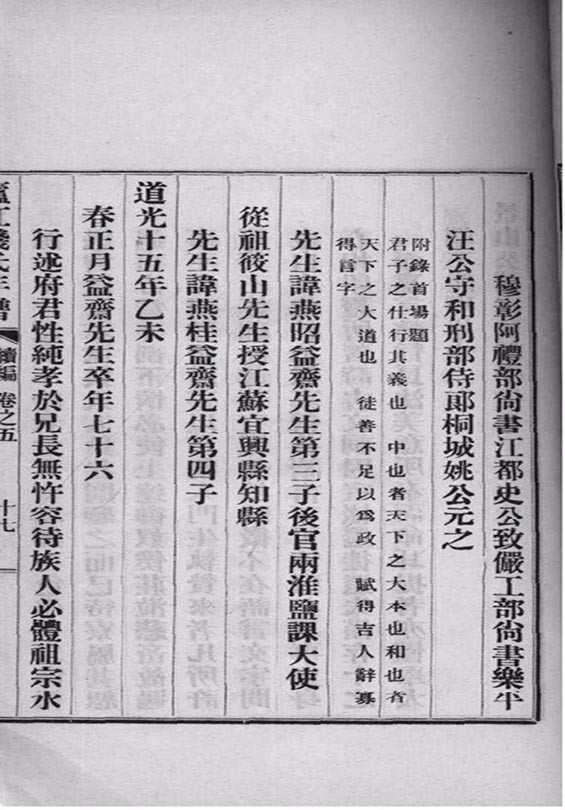 穆彰阿禮部尙書江都史公致儼工部尙書樂平
汪公守和刑部侍郎桐城姚公元之
附錄首場題
君子之仕行其義也　中也者天下之大本也和也者
天下之大道也　徒善不足以爲政　賦得吉人辭寡
得言字
先生諱燕昭益齋先生第三子後官兩淮鹽課大使
從祖筱山先生授江蘇宜興縣知縣
先生諱燕桂益齋先生第四子
道光十五年乙未
春正月益齋先生卒年七十六
行述府君性純孝於兄長無忤容待族人必體祖宗水
廬江錢氏年譜　續編　卷之五　十七